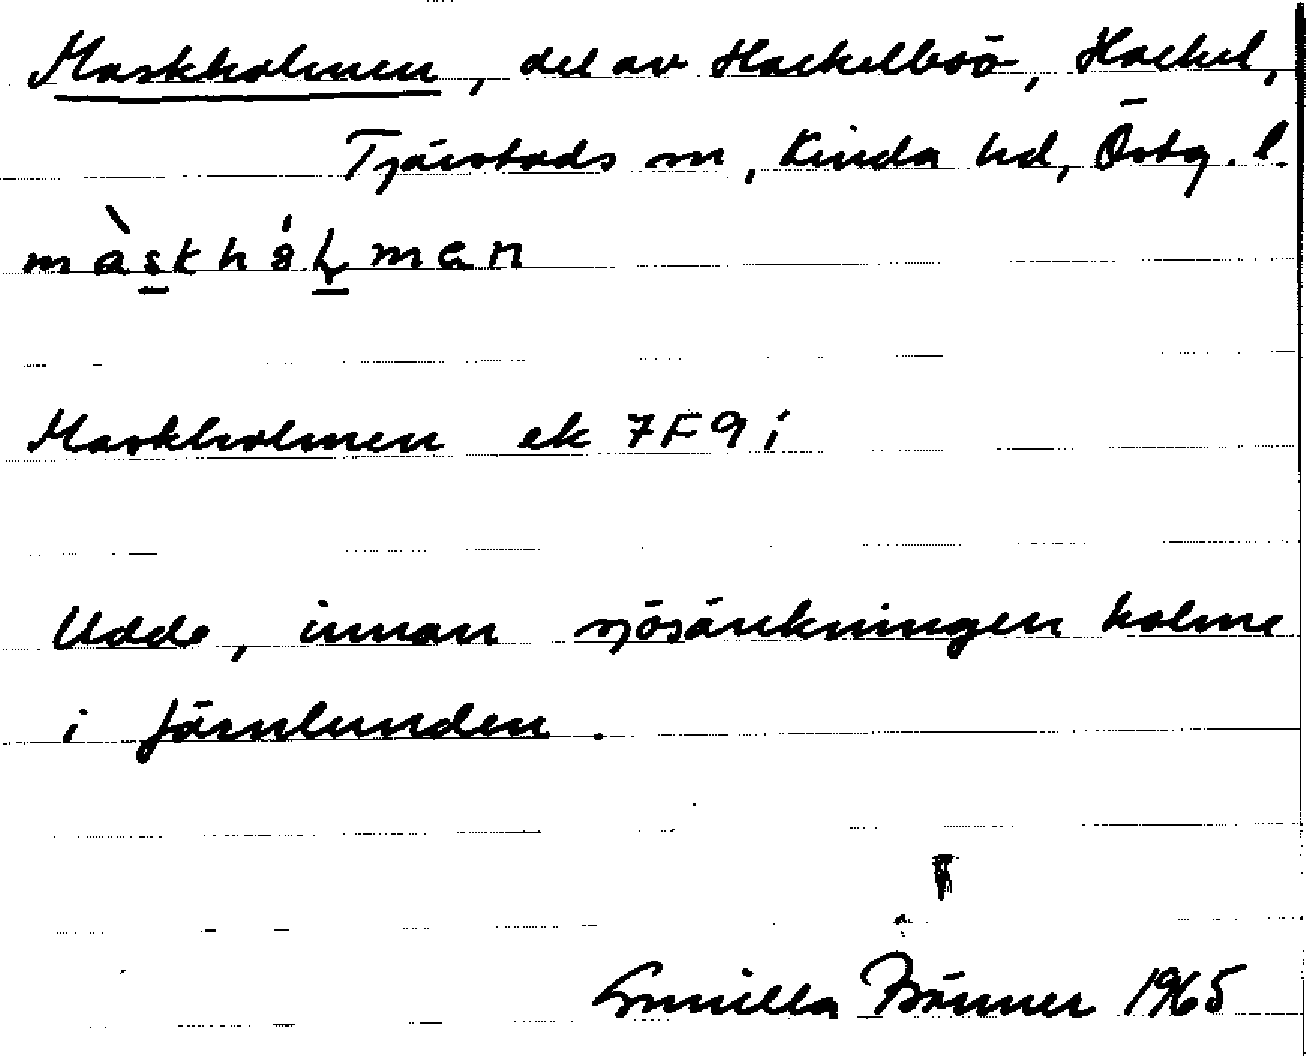 Maskholmen, del av Hackelboö, Hackel,
Tjärstads sn, Kinda hd, Östg. l.
màskhólmen
Maskholmen ek 7F9i
Udde, innan sjösänkningen holme
i Järnlunden.
Gunilla 1965